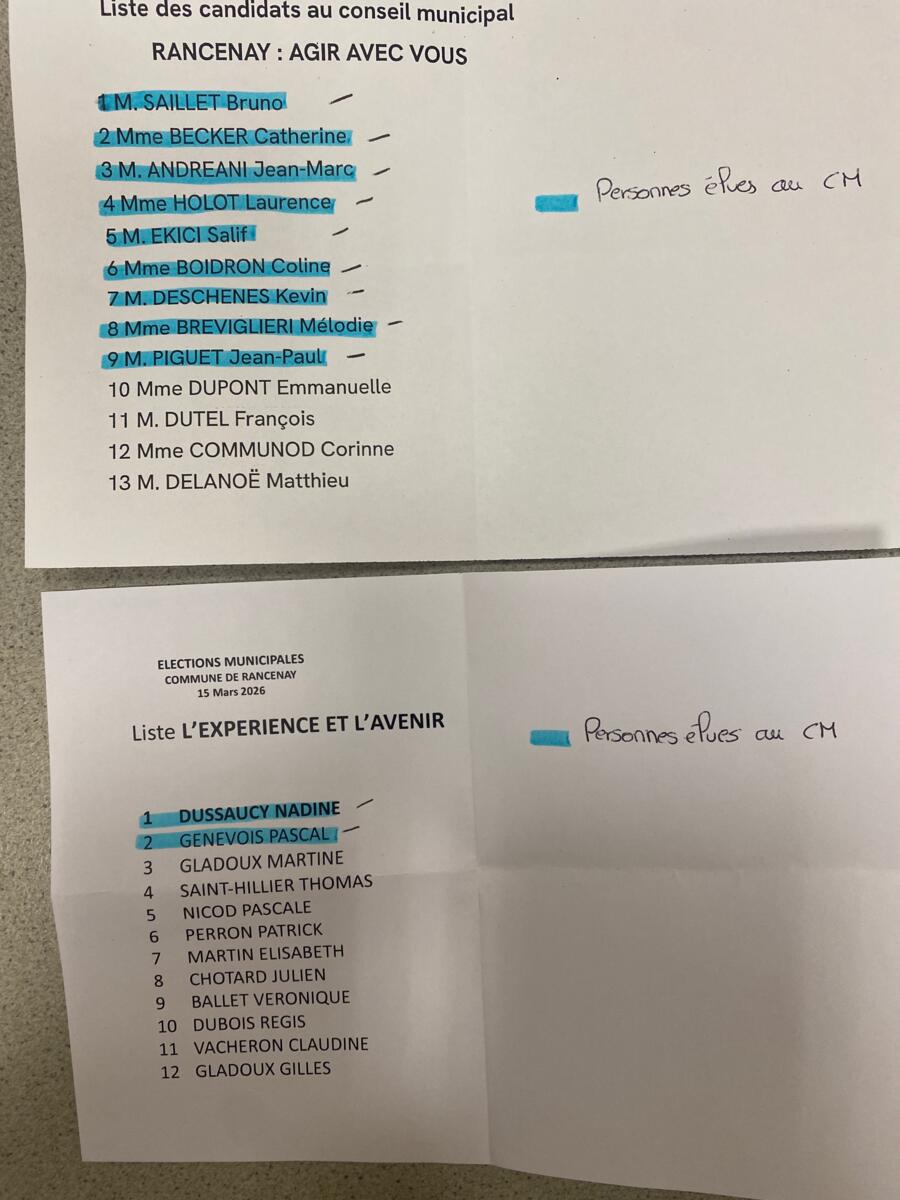 Liste des candidats au conseil municipal
RANCENAY : AGIR AVEC VOUS
1 M. SAILLET Bruno
2 Mme BECKER Catherine
3 M. ANDREANI Jean-Marc
4 Mme HOLOT Laurence
5 M. EKICI Salif
6 Mme BOIDRON Coline
7 M. DESCHENES Kevin
8 Mme BREVIGLIERI Mélodie
9 M. PIGUET Jean-Paul
10 Mme DUPONT Emmanuelle
11 M. DUTEL François
12 Mme COMMUNOD Corinne
13 M. DELANOË Matthieu
Personnes élues au CM
ELECTIONS MUNICIPALES
COMMUNE DE RANCENAY
15 Mars 2026
Liste L'EXPERIENCE ET L'AVENIR
1 DUSSAUCY NADINE
2 GENEVOIS PASCAL
3 GLADOUX MARTINE
4 SAINT-HILLIER THOMAS
5 NICOD PASCALE
6 PERRON PATRICK
7 MARTIN ELISABETH
8 CHOTARD JULIEN
9 BALLET VERONIQUE
10 DUBOIS REGIS
11 VACHERON CLAUDINE
12 GLADOUX GILLES
Personnes élues au CM